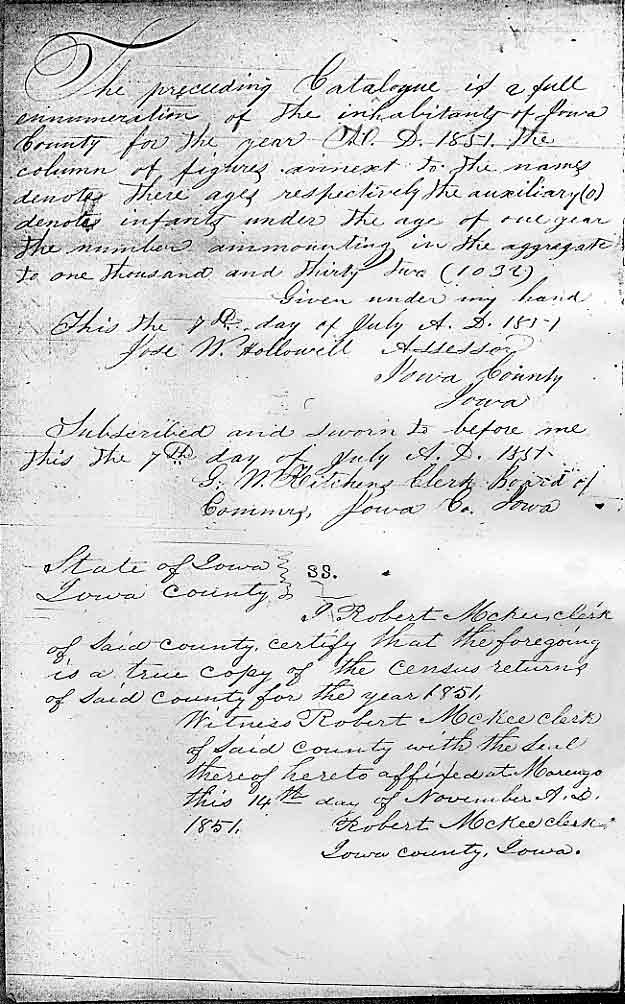 The preceeding Catalogue is a full
ennumeration of the inhabitants of Iowa
County for the year A. D. 1851. the
column of figures annext to the names
denotes there ages respectively the auxiliary (0)
denotes infants under the age of one year
the number ammounting in the aggregate
to one thousand and thirty two (1032)
Given under my hand
This the 7th day of July A. D. 1851
Jose W. Hollowell Assessor
Iowa County
Iowa
Subscribed and sworn to before me
this the 7th day of July A. D. 1851.
G. W. Kitchens Clerk Board of
Commrs, Iowa Co. Iowa
State of Iowa
Iowa County ss.
I Robert McKee, clerk
of said county, certify that the foregoing
is a true copy of the census returns
of said county for the year 1851.
Witness Robert McKee clerk
of said county with the seal
thereof hereto affixed at Marengo
this 14th day of November A. D.
1851. Robert McKee clerk.
Iowa county, Iowa.